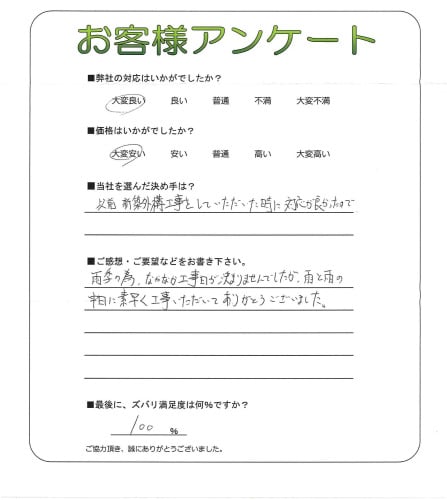 お客様アンケート
■弊社の対応はいかがでしたか?
大変良い 良い 普通 不満 大変不満
■価格はいかがでしたか?
大変安い 安い 普通 高い 大変高い
■当社を選んだ決め手は?
新築外構工事をしていただいた時に対応が良かったので
■ご感想・ご要望などをお書き下さい。
雨季の為、なかなか工事日が決まりませんでしたが、雨と雨の
中日に素早く工事いただいてありがとうございました。
■最後に、ズバリ満足度は何%ですか?
100 %
ご協力頂き、誠にありがとうございました。